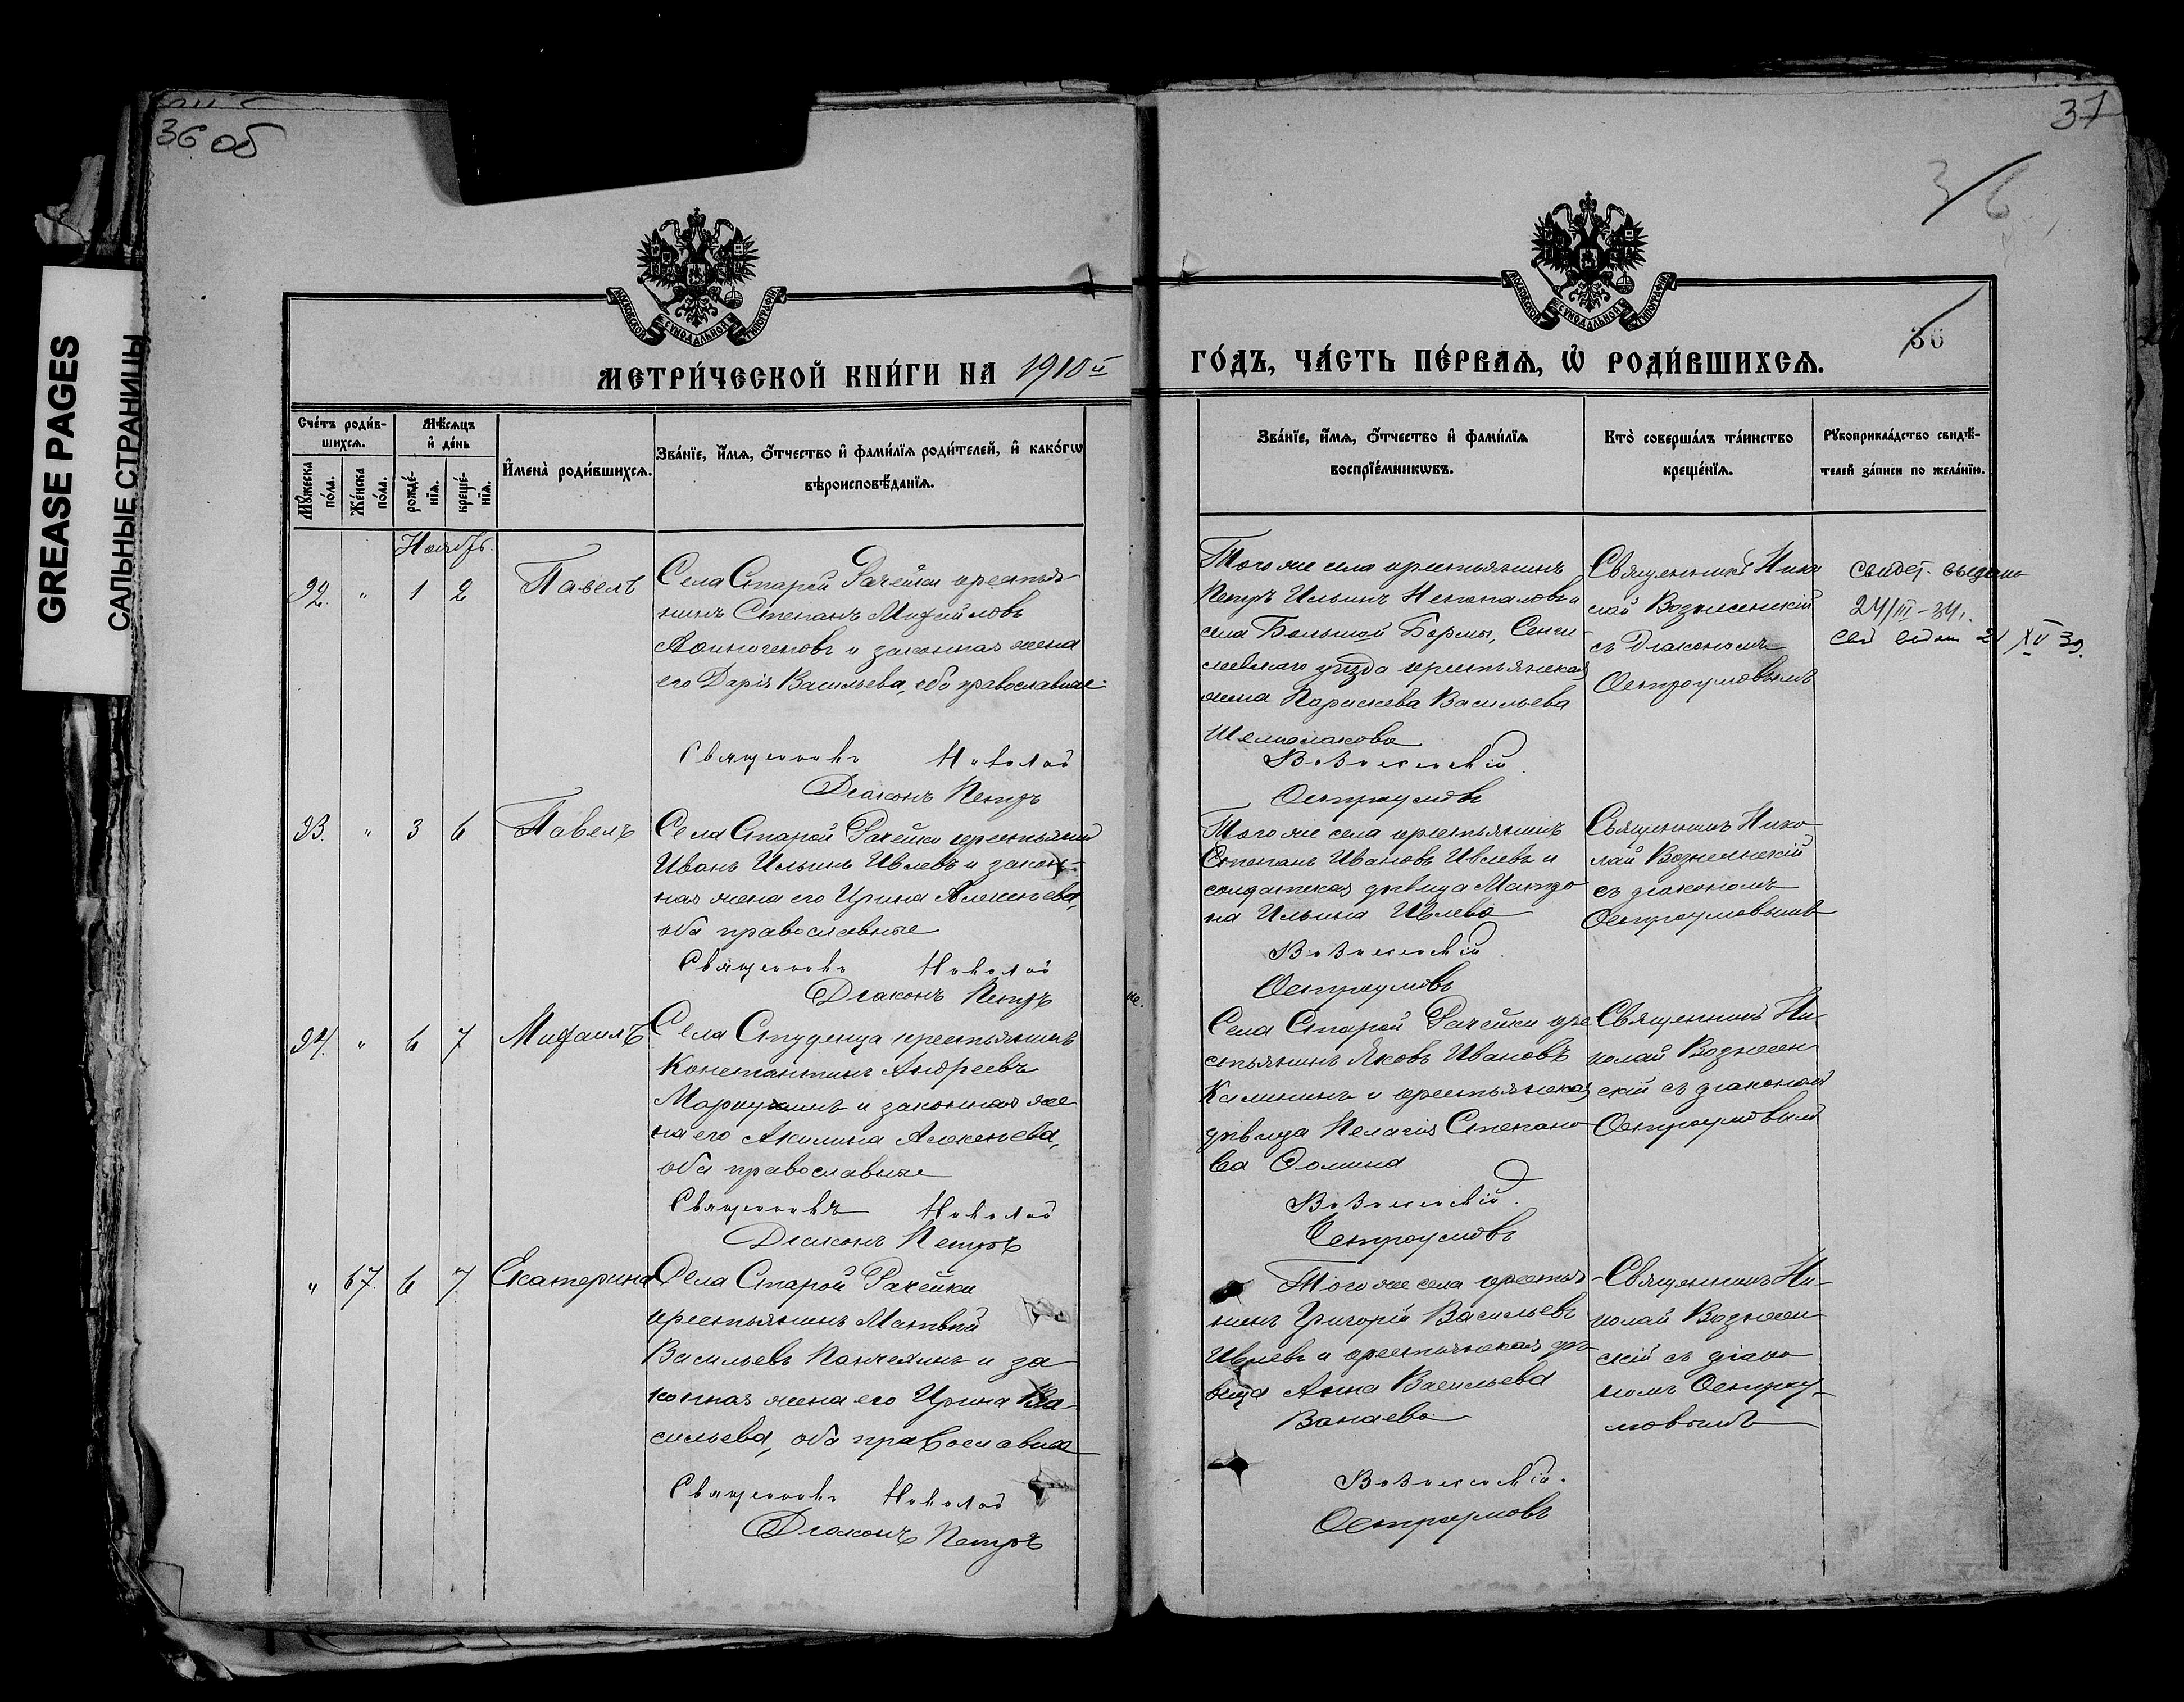 36 об
37
36
36
GREASE PAGES
САЛЬНЫЕ СТРАНИЦЫ
МОСКОВСКОЙ СѴНОДАЛЬНОЙ ТИПОГРАФІИ
МОСКОВСКОЙ СѴНОДАЛЬНОЙ ТИПОГРАФІИ
МЕТРИ́ЧЕСКОЙ КНИ́ГИ НА 1910й
ГО́ДЪ, ЧА́СТЬ ПЕ́РВАѦ, Ѡ҆ РОДИ́ВШИХСѦ.
Сче́тъ роди́в-
шихсѧ.
Мꙋ́жеска по́ла.
Же́нска по́ла.
Мѣ́сѧцъ
и҆ де́нь
рожде́-
нїѧ.
креще́-
нїѧ.
И҆мена̀ роди́вшихсѧ.
Зва́нїе, и҆́мѧ, ѻ҆́тчество и҆ фами́лїѧ роди́телей, и҆ како́гѡ
вѣроисповѣ́данїѧ.
Зва́нїе, и҆́мѧ, ѻ҆́тчество и҆ фами́лїѧ
воспрїе́мникѡвъ.
Кто̀ соверша́лъ та́инство
креще́нїѧ.
Рꙋкоприкла́дство свидѣ́-
телей за́писи по жела́нїю.
Ноябрь.
92. " 1 2 Павелъ
Села Старой Рачейки крестья-
нинъ Степанъ Михайловъ
и законная жена
его Дарія Васильева, оба православные
Священникъ Николай
Діаконъ Петръ
Того же села крестьянинъ
Петръ Ильинъ и
села Большой Борлы, Сенги-
леевскаго уѣзда крестьянская
жена Параскева Васильева
Вознесенскій
Остроумовъ
Священникъ Нико
лай Вознесенскій
съ Діакономъ
Остроумовымъ
свидет. выдано
24/III-34г.
93. " 3 6 Павелъ
Села Старой Рачейки крестьянинъ
Иванъ Ильинъ Ивлевъ и закон-
ная жена его Ирина Алексѣева,
оба православные
Священникъ Николай
Діаконъ Петръ
Того же села крестьянинъ
Степанъ Ивановъ Ивлевъ и
солдатская дѣвица Матро
на Ильина Ивлева
Вознесенскій
Остроумовъ
Священникъ Нико-
лай Вознесенскій
съ діакономъ
Остроумовымъ
94. " 6 7 Михаилъ
Села Студенца крестьянинъ
Константинъ Андреевъ
и законная же
на его Акилина Алексѣева,
оба православные
Священникъ Николай
Діаконъ Петръ
Села Старой Рачейки кре
стьянинъ Яковъ Ивановъ
Калининъ и крестьянская
дѣвица Пелагія Степано
ва Фомина
Вознесенскій
Остроумовъ
Священникъ Ни-
колай Вознесен
скій съ діакономъ
Остроумовымъ
" 67. 6 7 Екатерина
Села Старой Рачейки
крестьянинъ Матвѣй
Васильевъ и за
конная жена его Ирина Ва-
сильева, оба православные
Священникъ Николай
Діаконъ Петръ
Того же села крестья-
нинъ Григорій Васильевъ
Ивлевъ и крестьянская дѣ-
вица Анна Васильева
Ванаева
Вознесенскій.
Остроумовъ
Священникъ Ни-
колай Вознесен-
скій съ діако
номъ Остроу-
мовымъ